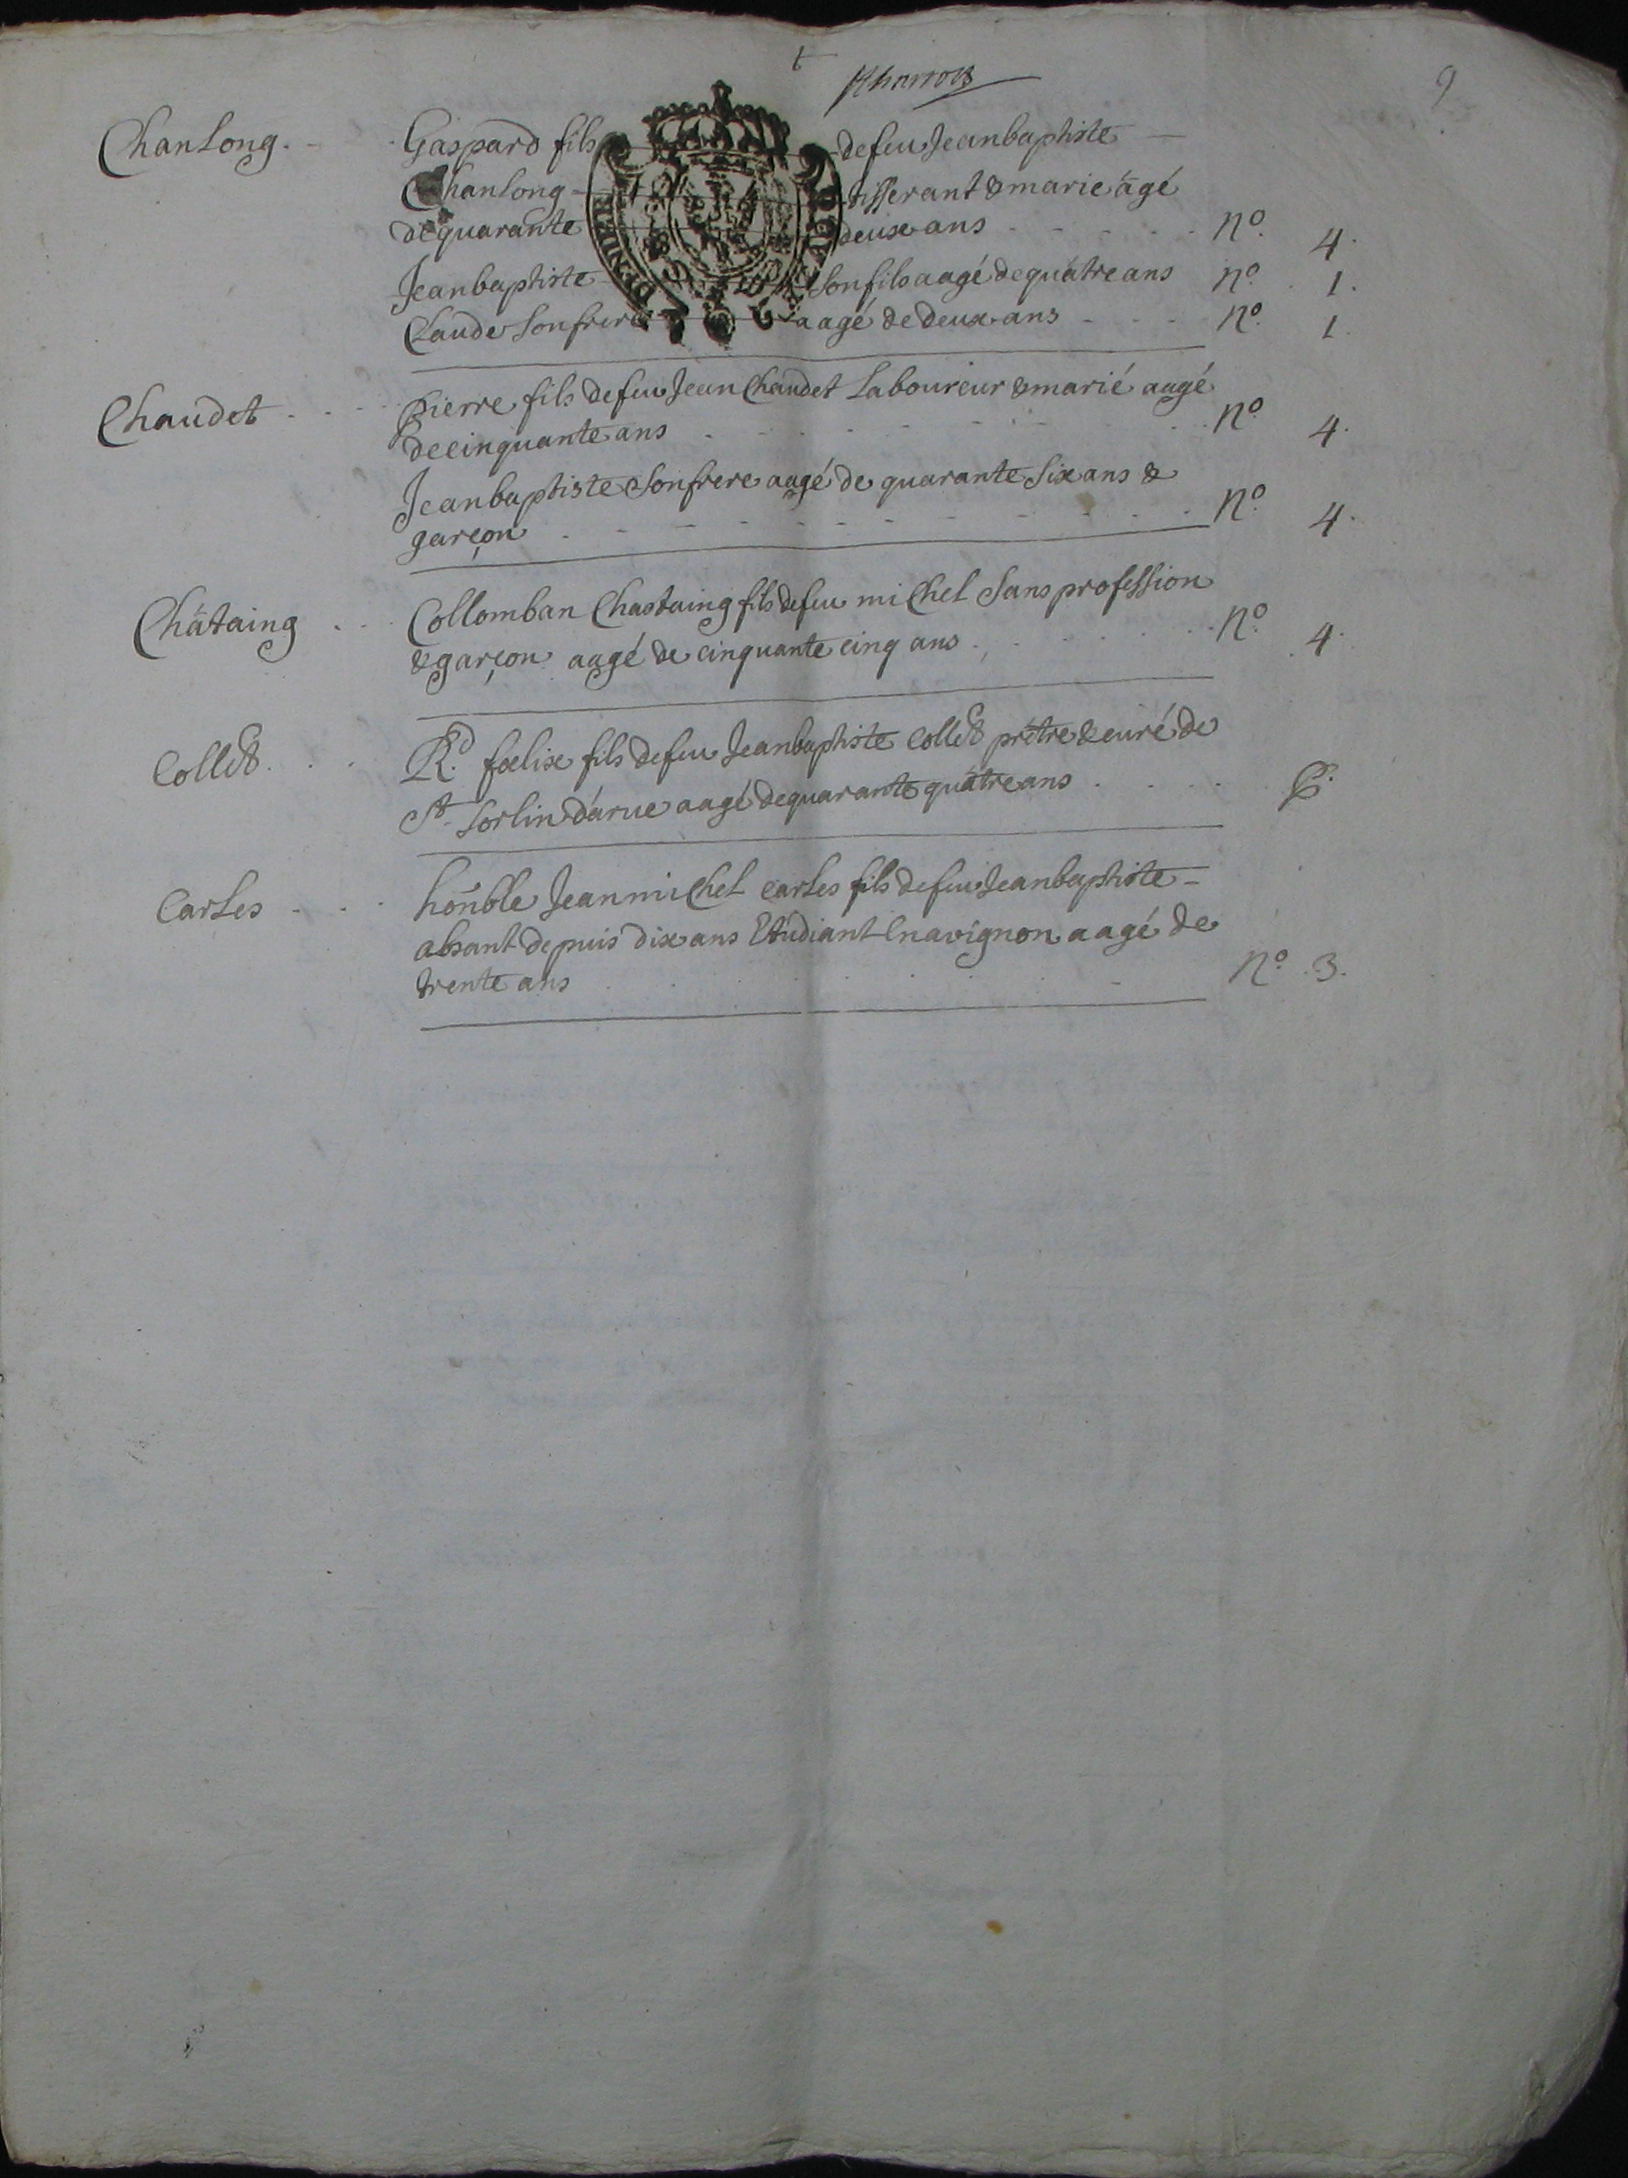 9
Chanlong. - Gaspard fils defeu Jeanbaptiste
Chanlong - tisserant & marie âgé
de quarante deux ans - - - - - no. 4.
Jeanbaptiste son fils aagé de quatre ans no. 1.
Claude son frere aagé de deux ans - - - no. 1.
Chaudet - - - Pierre fils defeu Jean Chaudet Laboureur & marié aagé
de cinquante ans - - - - - - - no. 4.
Jeanbaptiste son frere aagé de quarante six ans &
garçon - - - - - - - - - no. 4.
Châtaing - - Collomban Chastaing fils defeu michel sans profession
& garçon aagé de cinquante cinq ans - - - - - no. 4.
Collet. . . Rd. fœlix fils defeu Jeanbaptiste Collet prêtre & curé de
St. Sorlin d'arue aagé de quarante quatre ans . . . . .
Carles - - - honble Jean michel Carles fils defeu Jeanbaptiste -
absant depuis dix ans Etudiant En avignon aagé de
trente ans . . . . . . . no. 3.